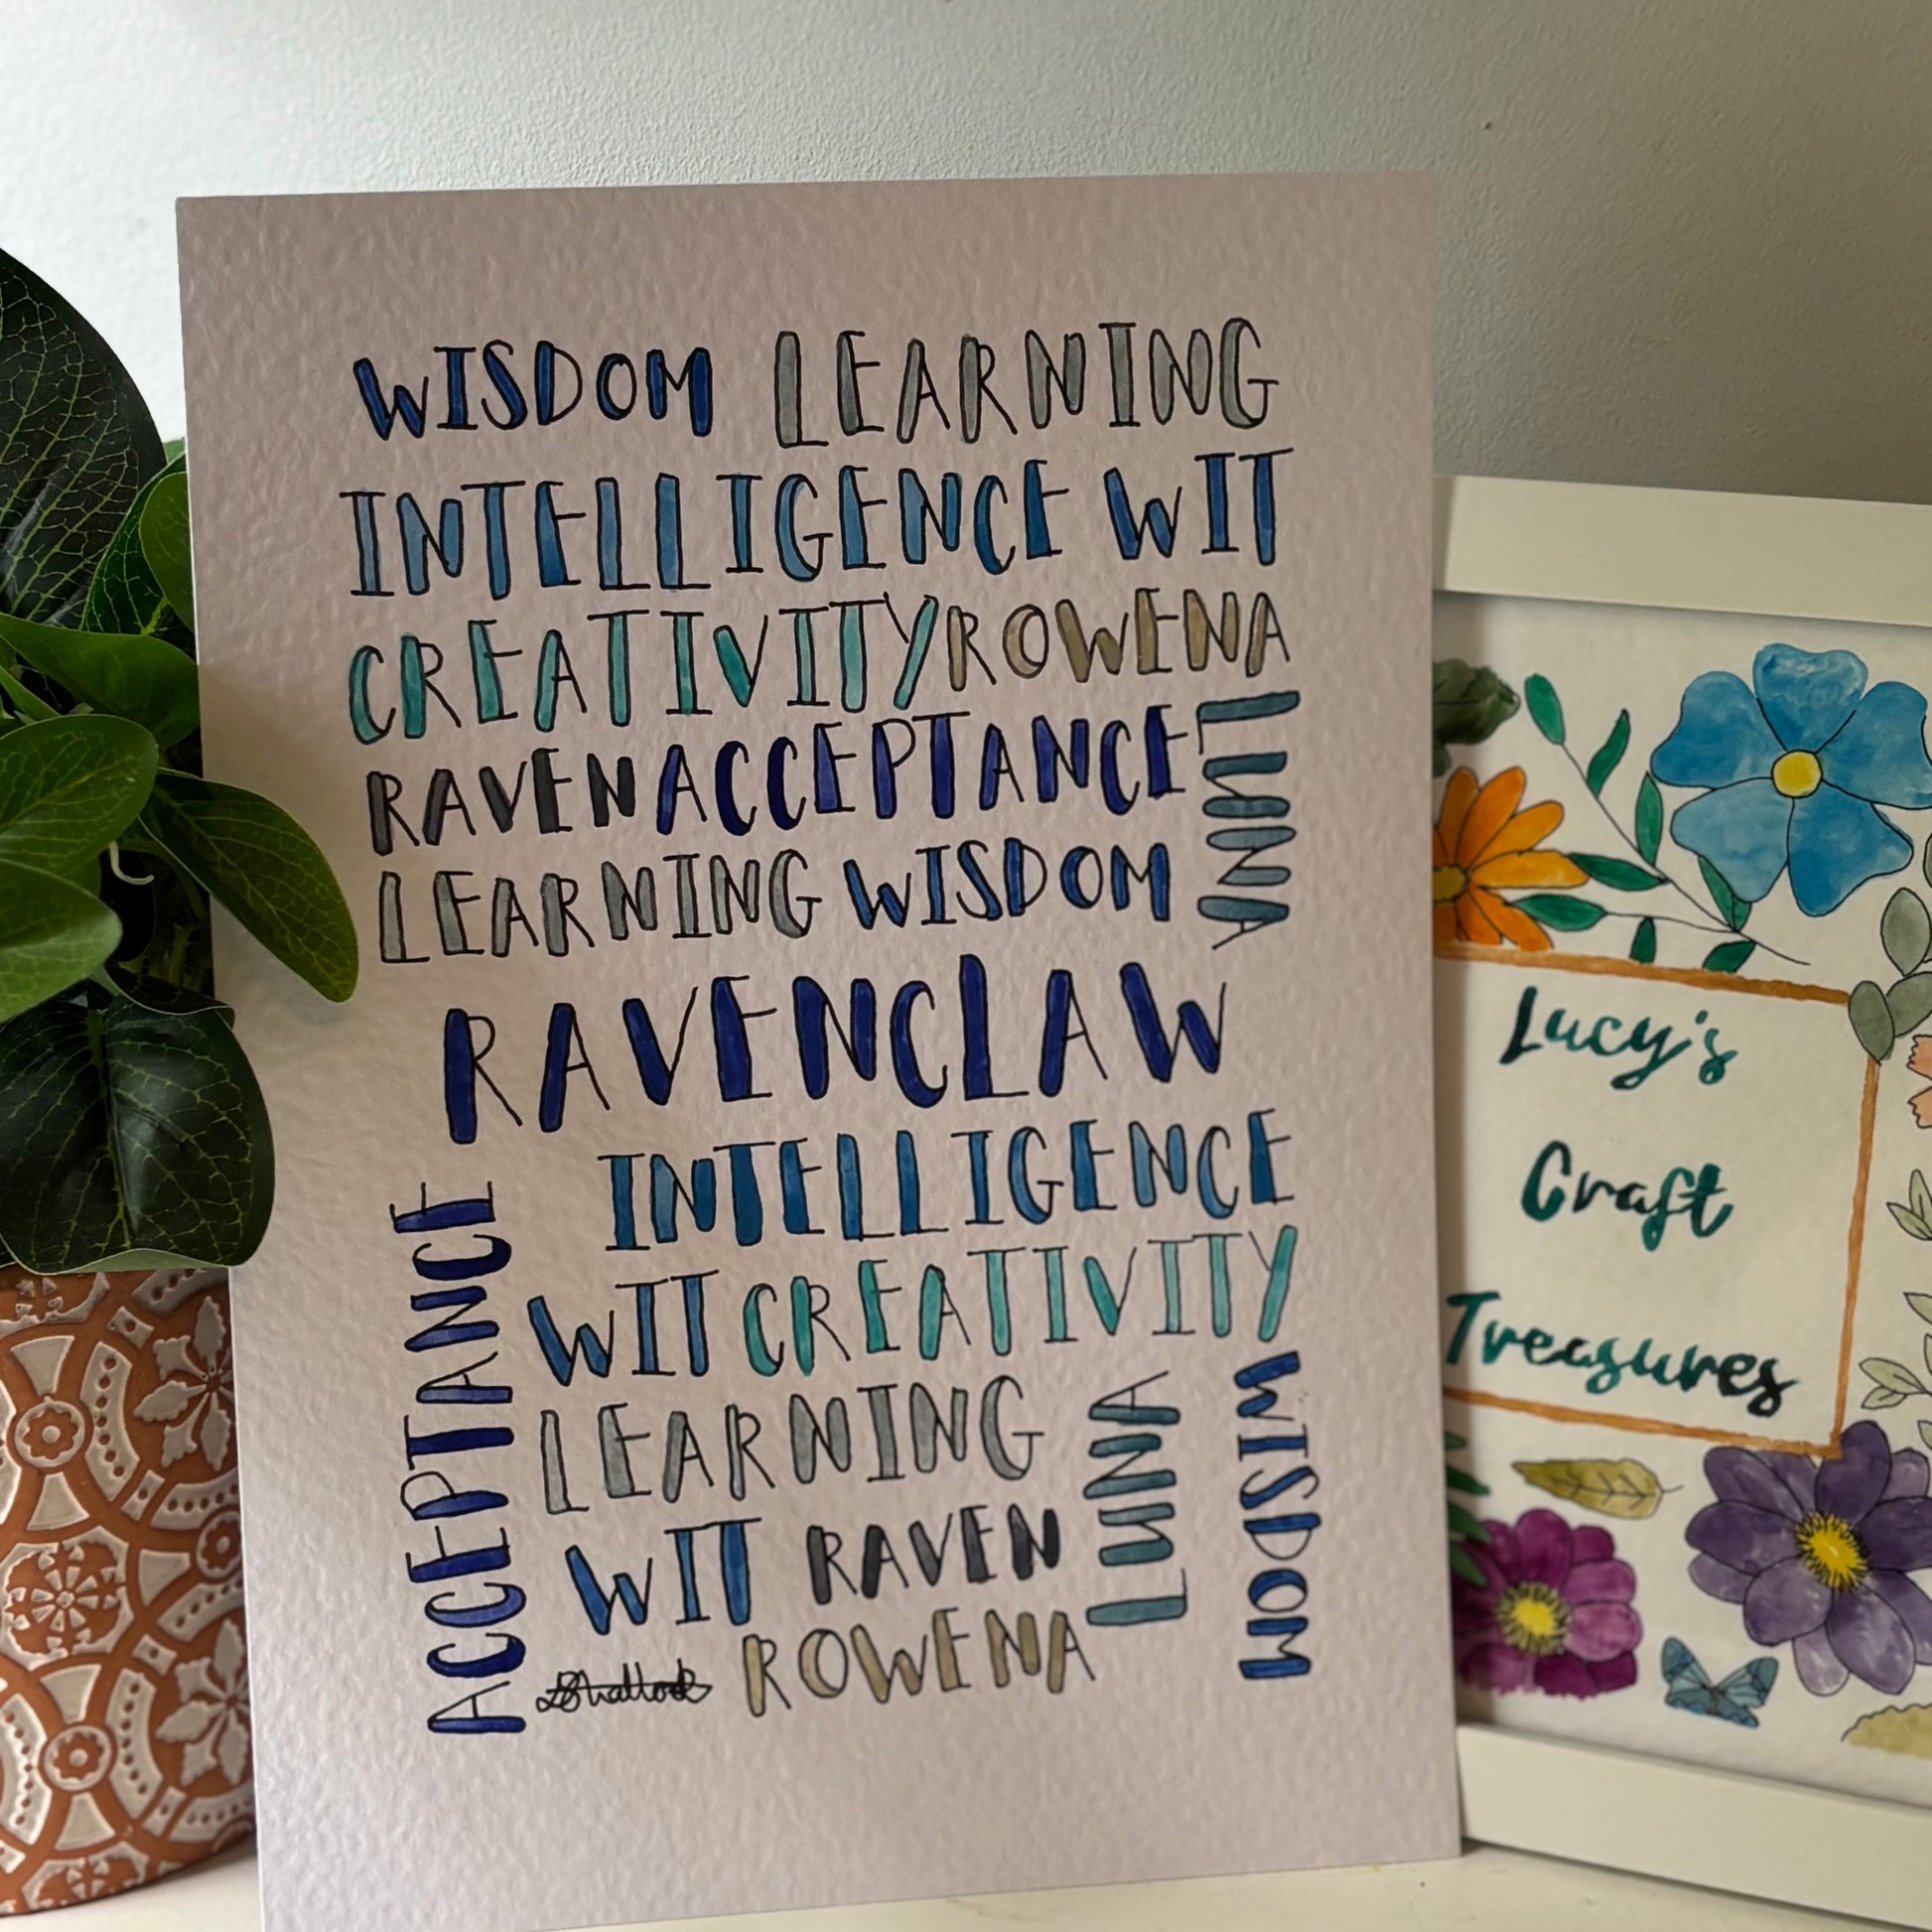 WISDOM LEARNING
INTELLIGENCE WIT
CREATIVITY ROWENA
RAVEN ACCEPTANCE
LUNA
LEARNING WISDOM
RAVENCLAW
INTELLIGENCE
ACCEPTANCE
WIT CREATIVITY
LEARNING
LUNA
WISDOM
WIT RAVEN
ROWENA
Lucy's
Craft
Treasures